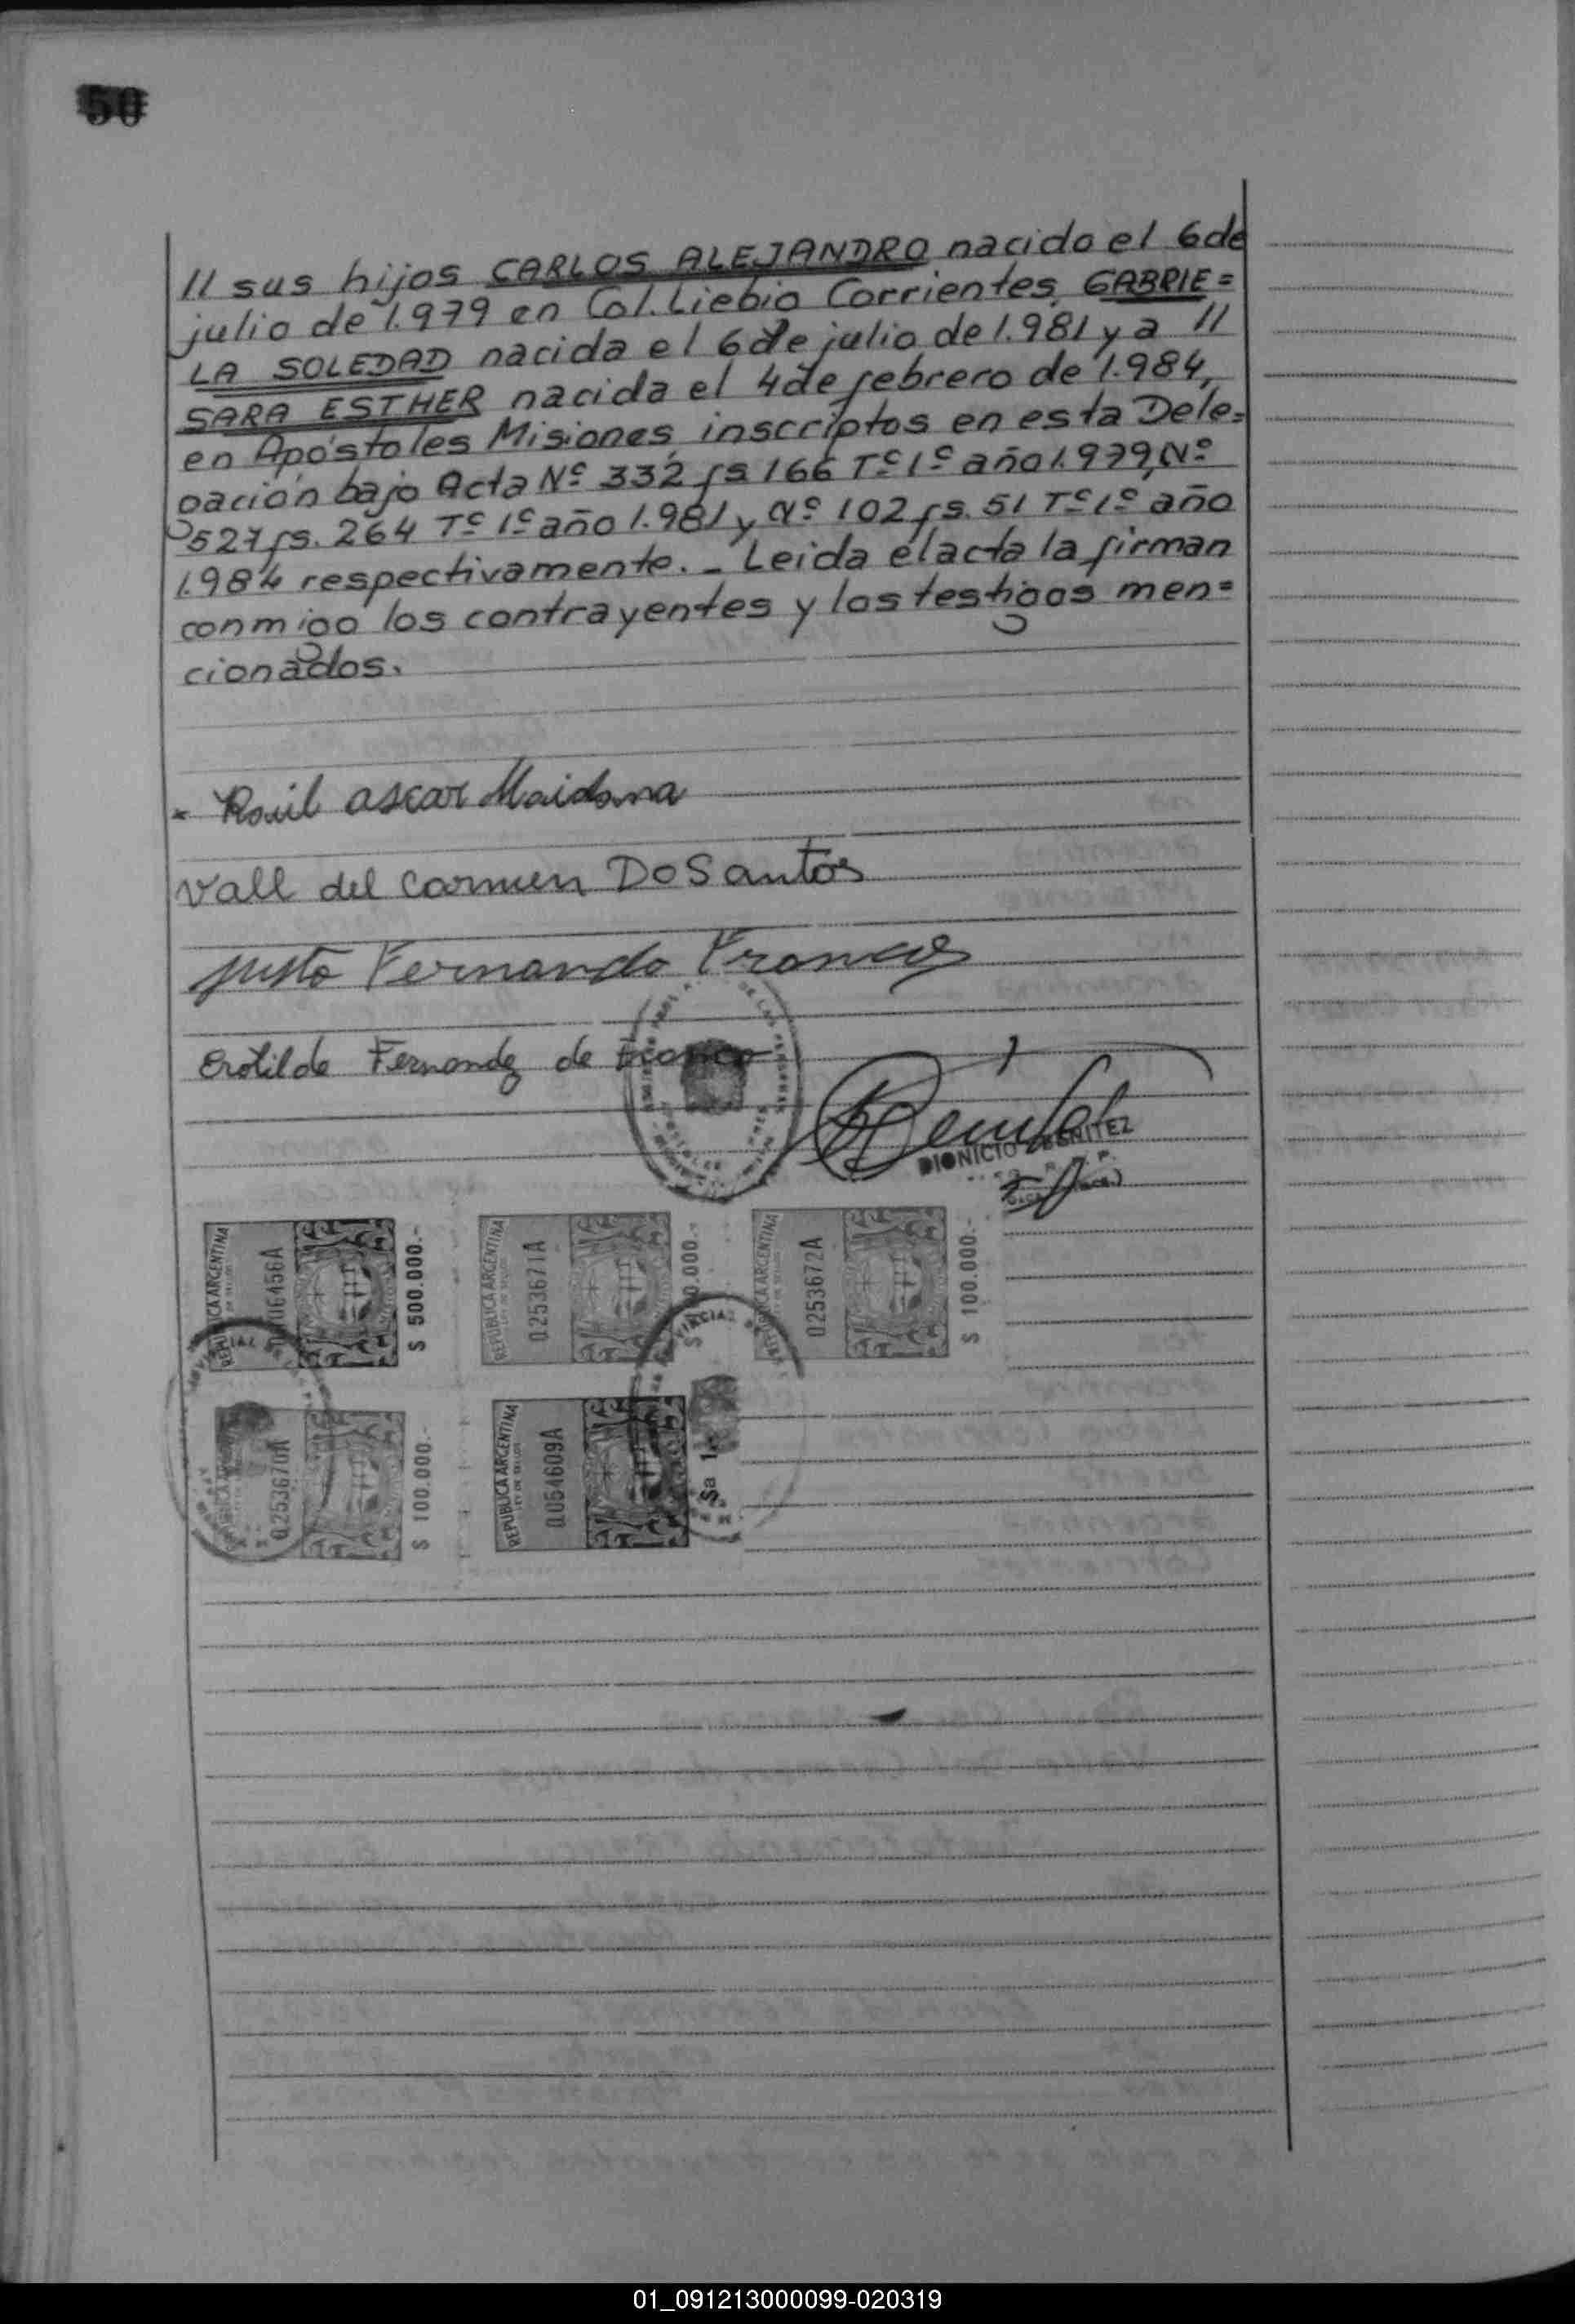 50
// sus hijos CARLOS ALEJANDRO nacido el 6 de
julio de 1.979 en Col. Liebig Corrientes, GABRIE=
LA SOLEDAD nacida el 6 de julio de 1.981 y a //
SARA ESTHER nacida el 4 de febrero de 1.984,
en Apóstoles Misiones, inscriptos en esta Dele=
gación bajo Acta Nº 332, fs 166 Tº 1º año 1.979, Nº
527 fs. 264 Tº 1º año 1.981 y Nº 102 fs. 51 Tº 1º año
1.984 respectivamente. - Leida el acta la firman
conmigo los contrayentes y los testigos men=
cionados.
Raúl ascar Maidana
Vall del Carmen Do Santos
Justo Fernando Franco
Erotilde Fernandez de Franco
DIONICIO BENITEZ
REPUBLICA ARGENTINA
$ 500.000.-
REPUBLICA ARGENTINA
0253671A
REPUBLICA ARGENTINA
0253672A
$ 100.000.-
0253670A
$ 100.000.-
REPUBLICA ARGENTINA
LEY DE SELLOS
0054609A
01_091213000099-020319